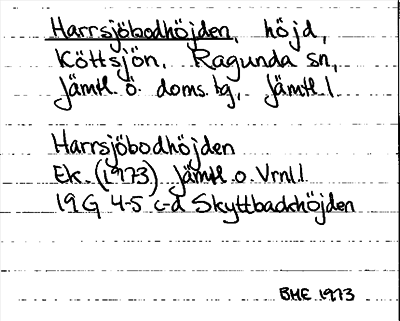 Harrsjöbodhöjden, höjd,
Köttsjön, Ragunda sn,
Jämtl. ö. doms.bg, Jämtl. l.
Harrsjöbodhöjden
Ek. (1973) Jämtl o. Vrnl.l.
19G 4-5 c-d Skyttbackhöjden
BME 1973